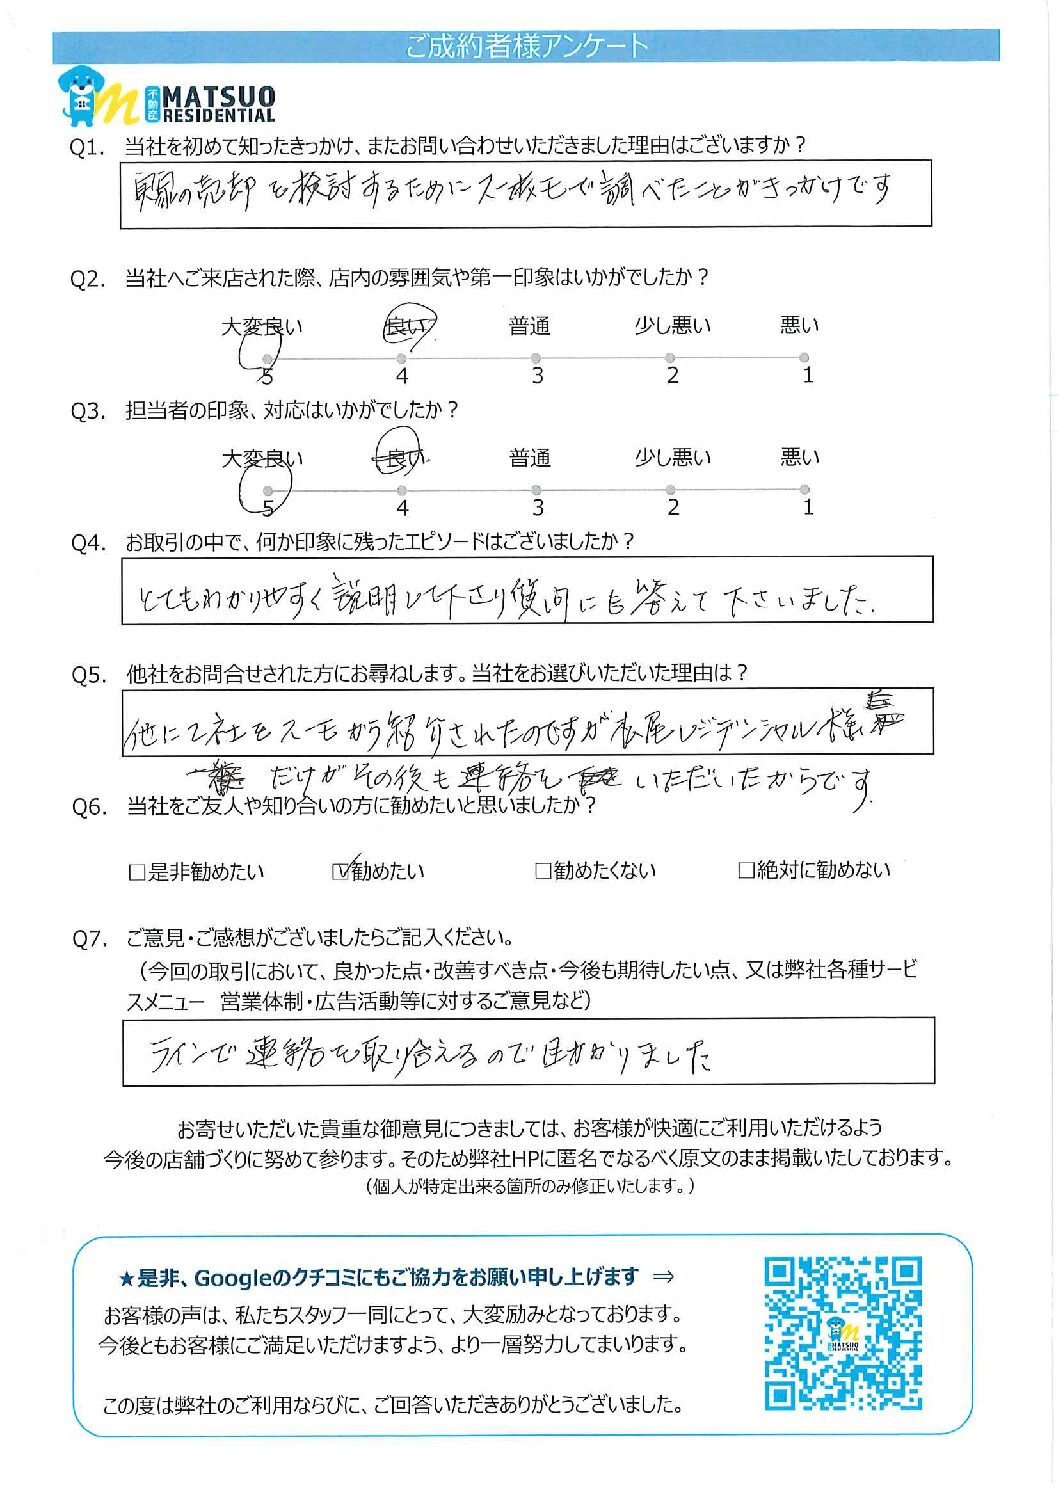 ご成約者様アンケート
不動産 MATSUO
RESIDENTIAL
Q1. 当社を初めて知ったきっかけ、またお問い合わせいただきました理由はございますか？
実家の売却を検討するためにスーモで調べたことがきっかけです
Q2. 当社へご来店された際、店内の雰囲気や第一印象はいかがでしたか？
大変良い 良い 普通 少し悪い 悪い
5 4 3 2 1
Q3. 担当者の印象、対応はいかがでしたか？
大変良い 良い 普通 少し悪い 悪い
5 4 3 2 1
Q4. お取引の中で、何か印象に残ったエピソードはございましたか？
とてもわかりやすく説明して下さり質問にも答えて下さいました。
Q5. 他社をお問合せされた方にお尋ねします。当社をお選びいただいた理由は？
他に2社をスーモから紹介されたのですが松尾レジデンシャル様
だけがその後も連絡をいただいたからです。
Q6. 当社をご友人や知り合いの方に勧めたいと思いましたか？
□是非勧めたい ☑勧めたい □勧めたくない □絶対に勧めない
Q7. ご意見・ご感想がございましたらご記入ください。
（今回の取引において、良かった点・改善すべき点・今後も期待したい点、又は弊社各種サービ
スメニュー 営業体制・広告活動等に対するご意見など）
ラインで連絡を取り合えるので助かりました
お寄せいただいた貴重な御意見につきましては、お客様が快適にご利用いただけるよう
今後の店舗づくりに努めて参ります。そのため弊社HPに匿名でなるべく原文のまま掲載いたしております。
（個人が特定出来る箇所のみ修正いたします。）
★是非、Googleのクチコミにもご協力をお願い申し上げます ⇒
お客様の声は、私たちスタッフ一同にとって、大変励みとなっております。
今後ともお客様にご満足いただけますよう、より一層努力してまいります。
この度は弊社のご利用ならびに、ご回答いただきありがとうございました。
MATSUO
RESIDENTIAL